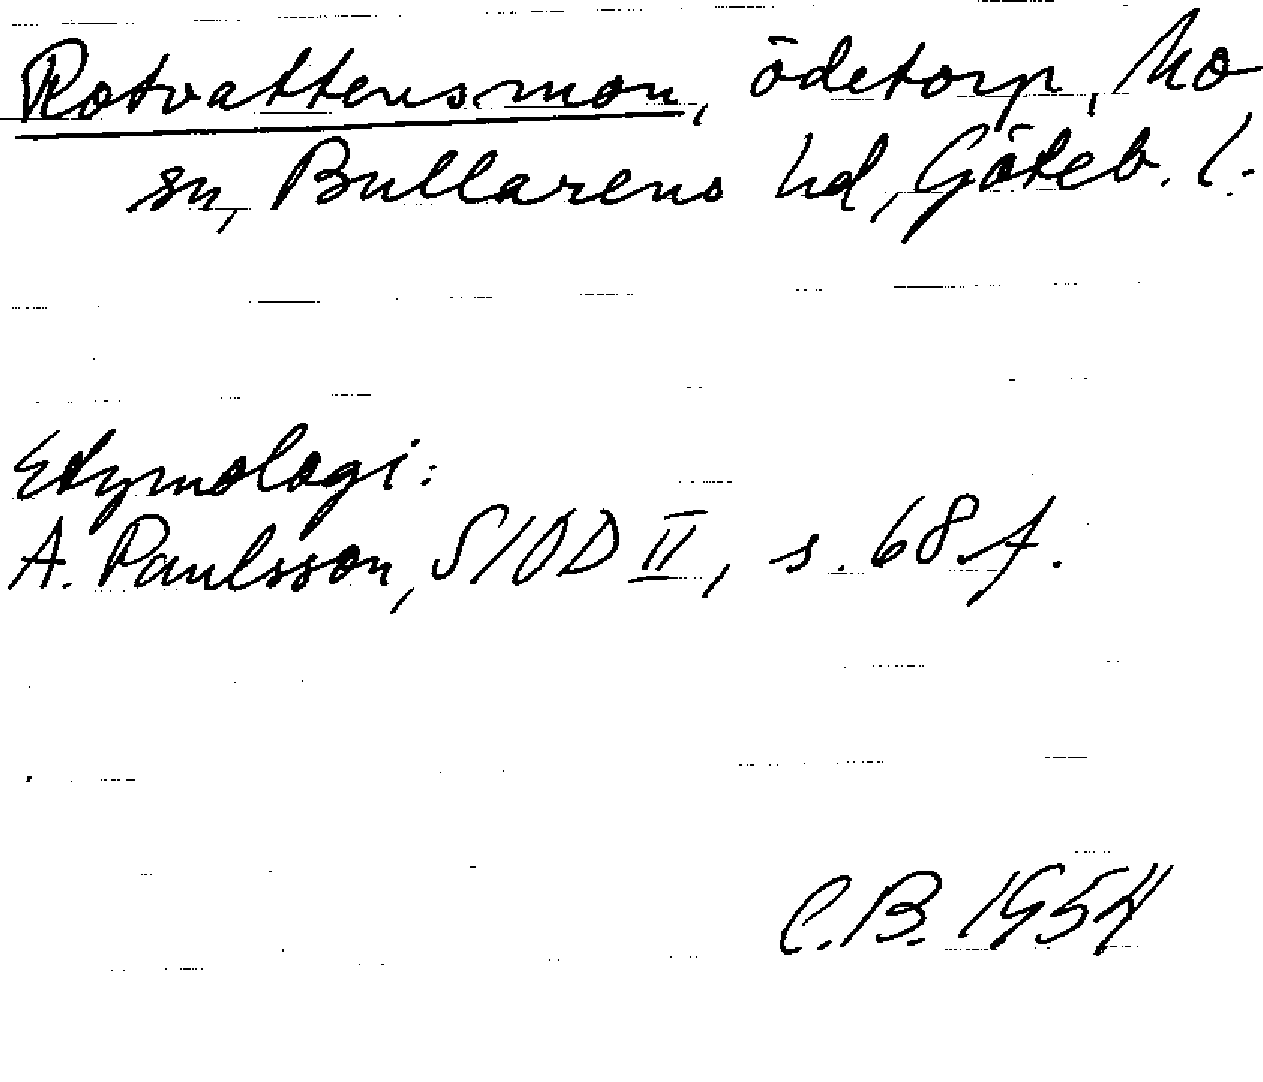 Rotvattensmon, ödetorp, Mo
sn, Bullarens hd, Göteb. l.
Etymologi:
A. Paulsson, SIOD II, s. 68 f.
C.B. 1954